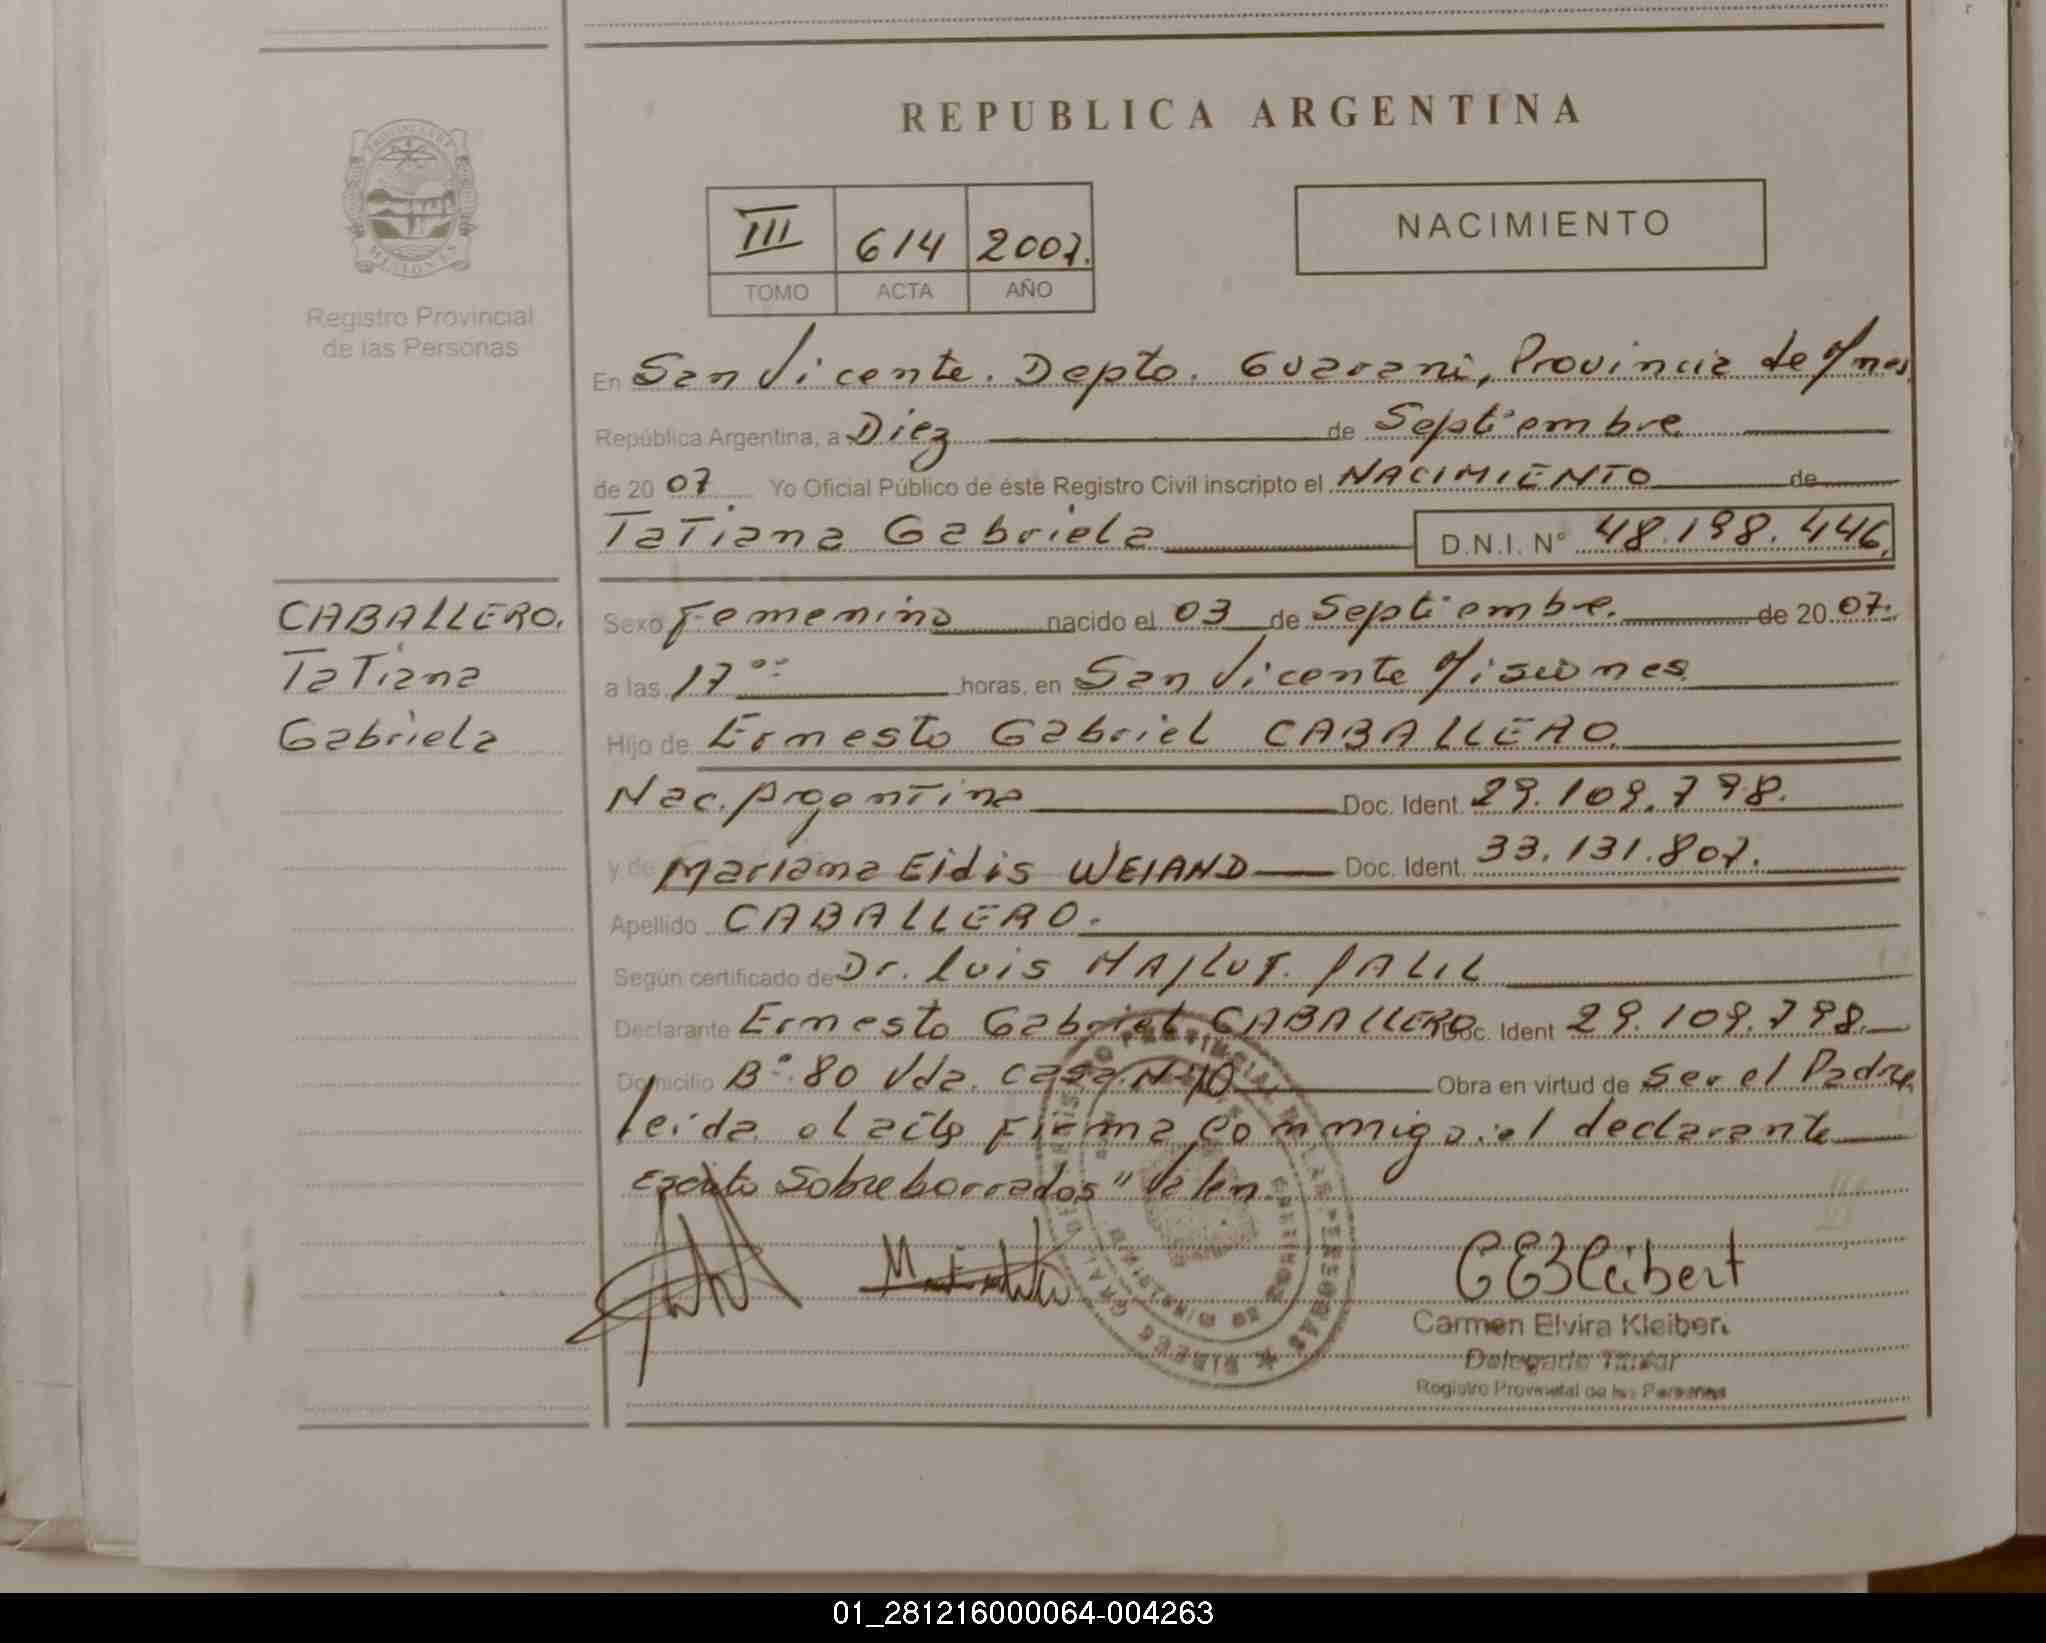 REPUBLICA ARGENTINA
PROVINCIA DE
MISIONES
Registro Provincial
de las Personas
III 614 2007.
TOMO ACTA AÑO
NACIMIENTO
En San Vicente. Depto. Guaraní, Provincia de Mnes
República Argentina, a Diez de Septiembre
de 2007 Yo Oficial Público de éste Registro Civil inscripto el NACIMIENTO de
Tatiana Gabriela D.N.I. Nº 48.198.446.
CABALLERO.
Tatiana
Gabriela
Sexo Femenino nacido el 03 de Septiembre. de 2007.
a las 17 oo horas, en San Vicente Misiones
Hijo de Ernesto Gabriel CABALLERO.
Nac. Argentina Doc. Ident. 29.109.798.
y de Mariana Eidis WEIAND Doc. Ident. 33.131.807.
Apellido CABALLERO.
Según certificado de Dr. Luis MAJLUF. JALIL
Declarante Ernesto Gabriel CABALLERO Doc. Ident 29.109.798.
Domicilio Bº. 80 Vda. Casa Nº 40 Obra en virtud de Ser el Padre
leida el acta Firma conmigo el declarante
Escrito Sobreborrados" Valen.
CEKleibert
Carmen Elvira Kleibert
Delegado Titular
Registro Provincial de las Personas
01_281216000064-004263